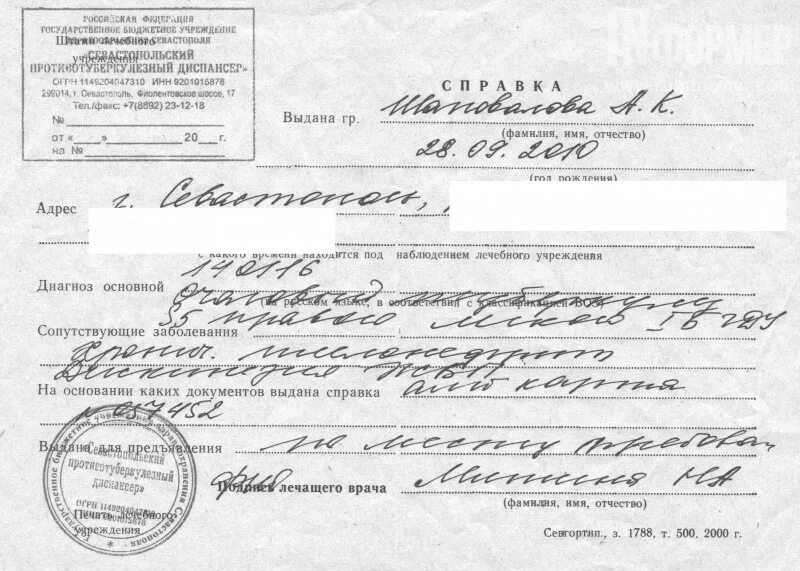 РОССИЙСКАЯ ФЕДЕРАЦИЯ
ГОСУДАРСТВЕННОЕ БЮДЖЕТНОЕ УЧРЕЖДЕНИЕ
ЗДРАВООХРАНЕНИЯ СЕВАСТОПОЛЯ
Штамп лечебного
учреждения
«СЕВАСТОПОЛЬСКИЙ
ПРОТИВОТУБЕРКУЛЕЗНЫЙ ДИСПАНСЕР»
ОГРН 1149204047310 ИНН 9201015878
299014, г. Севастополь, Фиолентовское шоссе, 17
Тел./факс: +7(8692) 23-12-18
№
от «___»___ 20__г.
на №
СПРАВКА
Выдана гр. Шаповалова А. К.
(фамилия, имя, отчество)
28.09.2010
(год рождения)
Адрес г. Севастополь,
с какого времени находится под наблюдением лечебного учреждения
140116
Диагноз основной очаговый туберкулез
(на русском языке, в соответствии с классификацией ВОЗ)
S5 правого легкого IБ ГДУ
Сопутствующие заболевания
Хронич. пиелонефрит
Дискинезия ЖВП
На основании каких документов выдана справка амб карта
057452
Выдана для предъявления по месту требован
Подпись лечащего врача Митина НА
(фамилия, имя, отчество)
Государственное бюджетное учреждение здравоохранения Севастополя
«Севастопольский
противотуберкулезный
диспансер»
ОГРН 1149204047310
ИНН 9201015878
Печать лечебного
учреждения
Севгортип., з. 1788, т. 500. 2000 г.